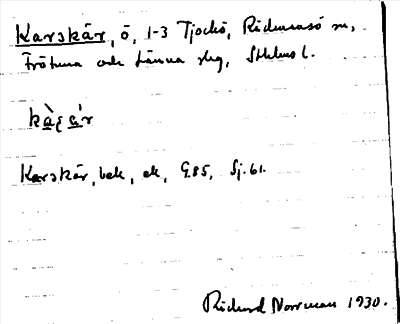 Karskär, ö, 1-3 Tjockö, Rådmansö sn,
Frötuna och Länna slg, Sthlms l.
Karskär, bek, ek, G.85, Sj.61.
Rickard Norrman 1930.